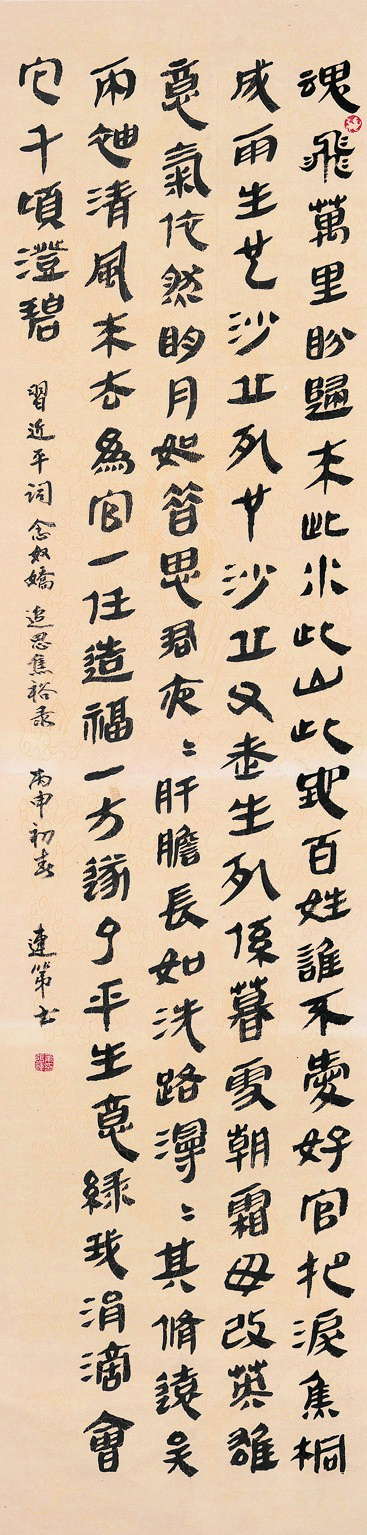 魂飛萬里盼歸來此水此山此地百姓誰不愛好官把淚焦桐
成雨生也沙丘死也沙丘父老生死係暮雪朝霜毋改英雄
意氣依然眀月如昔思君夜〻肝膽長如洗路漫〻其脩遠矣
兩袖清風來去為官一任造福一方遂了平生意綠我涓滴會
它千頃澄碧 習近平詞 念奴嬌 追思焦裕祿 丙申初春 連第書